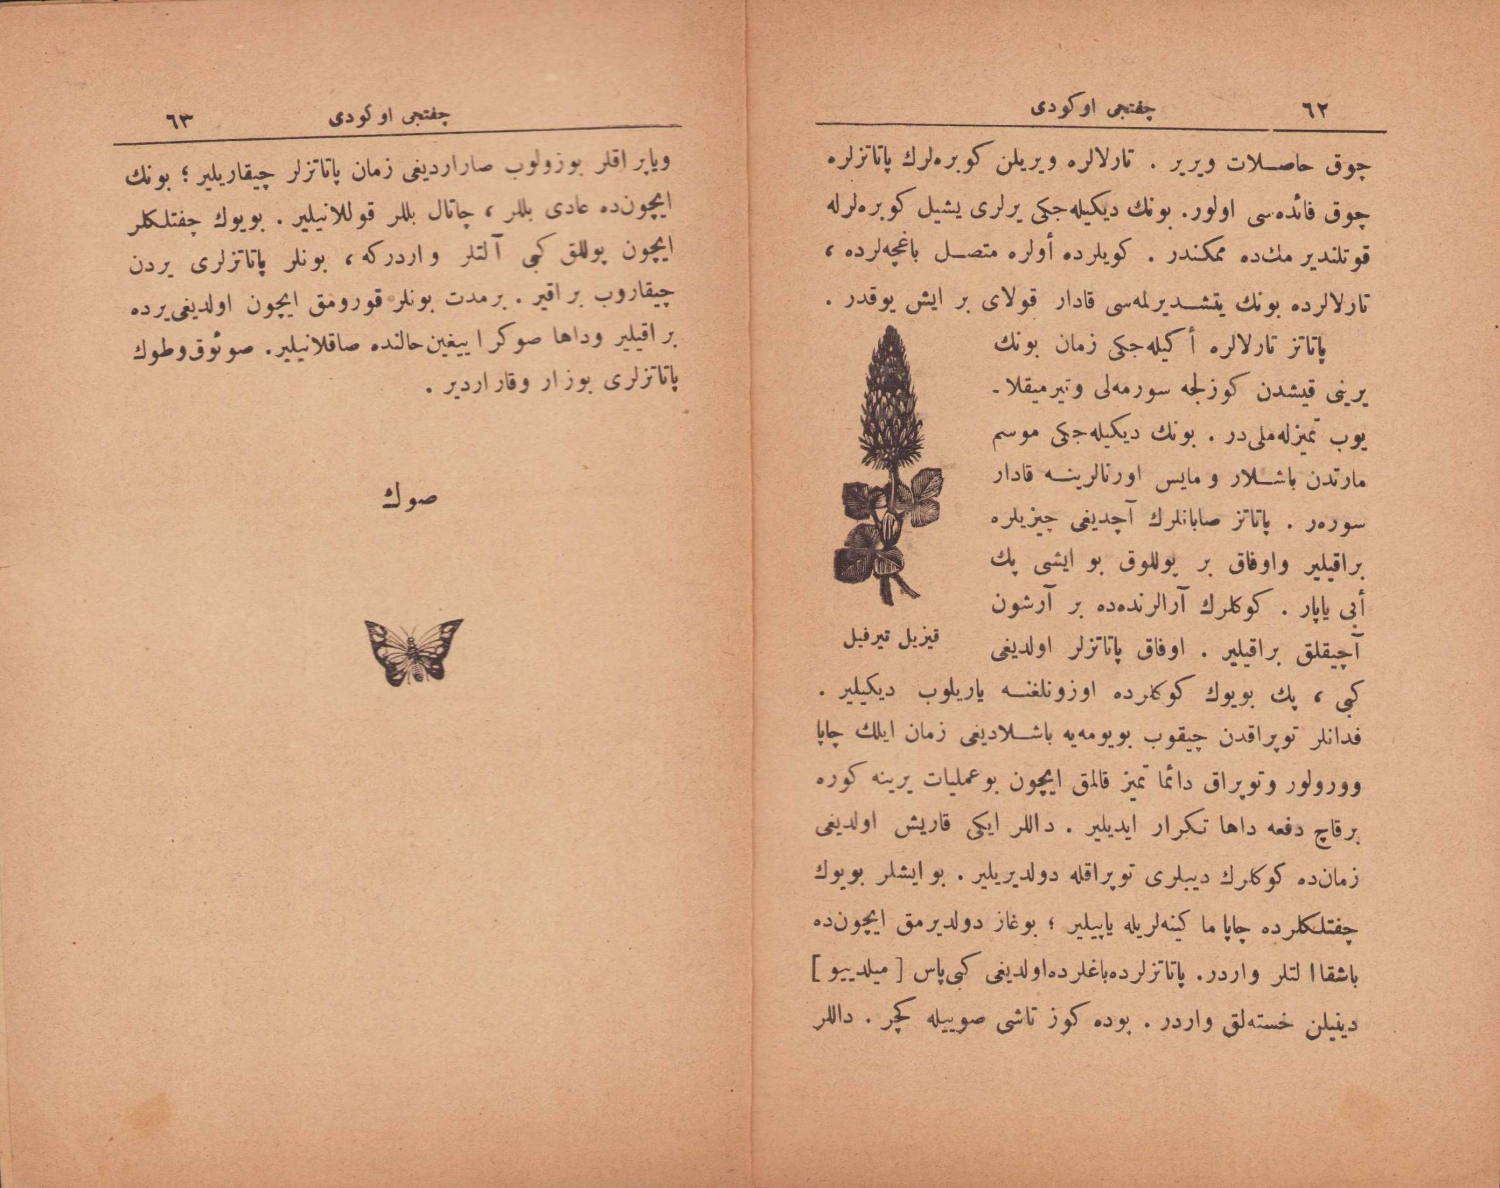 ٦٢
چفتجی اوكودی
چوق حاصلات ویریر . تارلالره ویریلن كوبره‌لرك پاتاتزلره
چوق فائده‌سی اولور. بونك دیكیله‌جكی یرلری یشیل كوبره‌لرله
قوتلندیرمك‌ده ممكندر . كویلرده أولره متصل باغچه‌لرده ،
تارلالرده بونك یتشدیرلمه‌سی قادار قولای بر ایش یوقدر .
پاتاتز تارلالره أكیله‌جكی زمان بونك
یرینی قیشدن كوزلجه سورمه‌لی وتیرمیقلا-
یوب تمیزله‌ملی‌در . بونك دیكیله‌جكی موسم
مارتدن باشلار و مایس اورتالرینه قادار
سوره‌ر . پاتاتز صابانلرك آچدیغی چیزیلره
براقیلیر واوفاق بر یوللوق بو ایشی پك
أیی یاپار . كوكلرك آرالرنده‌ده بر آرشون
آچیقلق براقیلیر . اوفاق پاتاتزلر اولدیغی
قیزیل تیرفیل
كبی ، پك بویوك كوكلرده اوزونلغنه یاریلوب دیكیلیر .
فدانلر توپراقدن چیقوب بویومه‌یه باشلادیغی زمان ایلك چاپا
وورولور وتوپراق دائما تمیز قالمق ایچون بوعملیات یرینه كوره
برقاچ دفعه داها تكرار ایدیلیر . داللر ایكی قاریش اولدیغی
زمان‌ده كوكلرك دیبلری توپراقله دولدیریلیر . بو ایشلر بویوك
چفتلكلرده چاپا ما كینه‌لریله یاپیلیر ؛ بوغاز دولدیرمق ایچون‌ده
باشقا ا لتلر واردر. پاتاتزلرده‌باغلرده‌اولدیغی كبی‌پاس [ میلدییو ]
دینیلن خسته‌لق واردر . بوده كوز تاشی صوییله كچر . داللر
٦٣
چفتجی اوكودی
ویاپراقلر بوزولوب صاراردیغی زمان پاتاتزلر چیقاریلیر ؛ بونك
ایچون‌ده عادی بللر ، چاتال بللر قوللانیلیر . بویوك چفتلكلر
ایچون یوللق كبی آلتلر واردركه ، بونلر پاتاتزلری یردن
چیقاروب براقیر . برمدت بونلر قورومق ایچون اولدیغی‌یرده
براقیلیر وداها صوكرا ییغین‌حالنده صاقلانیلیر. صوئوق‌وطوك
پاتاتزلری بوزار وقاراردیر .
صوك